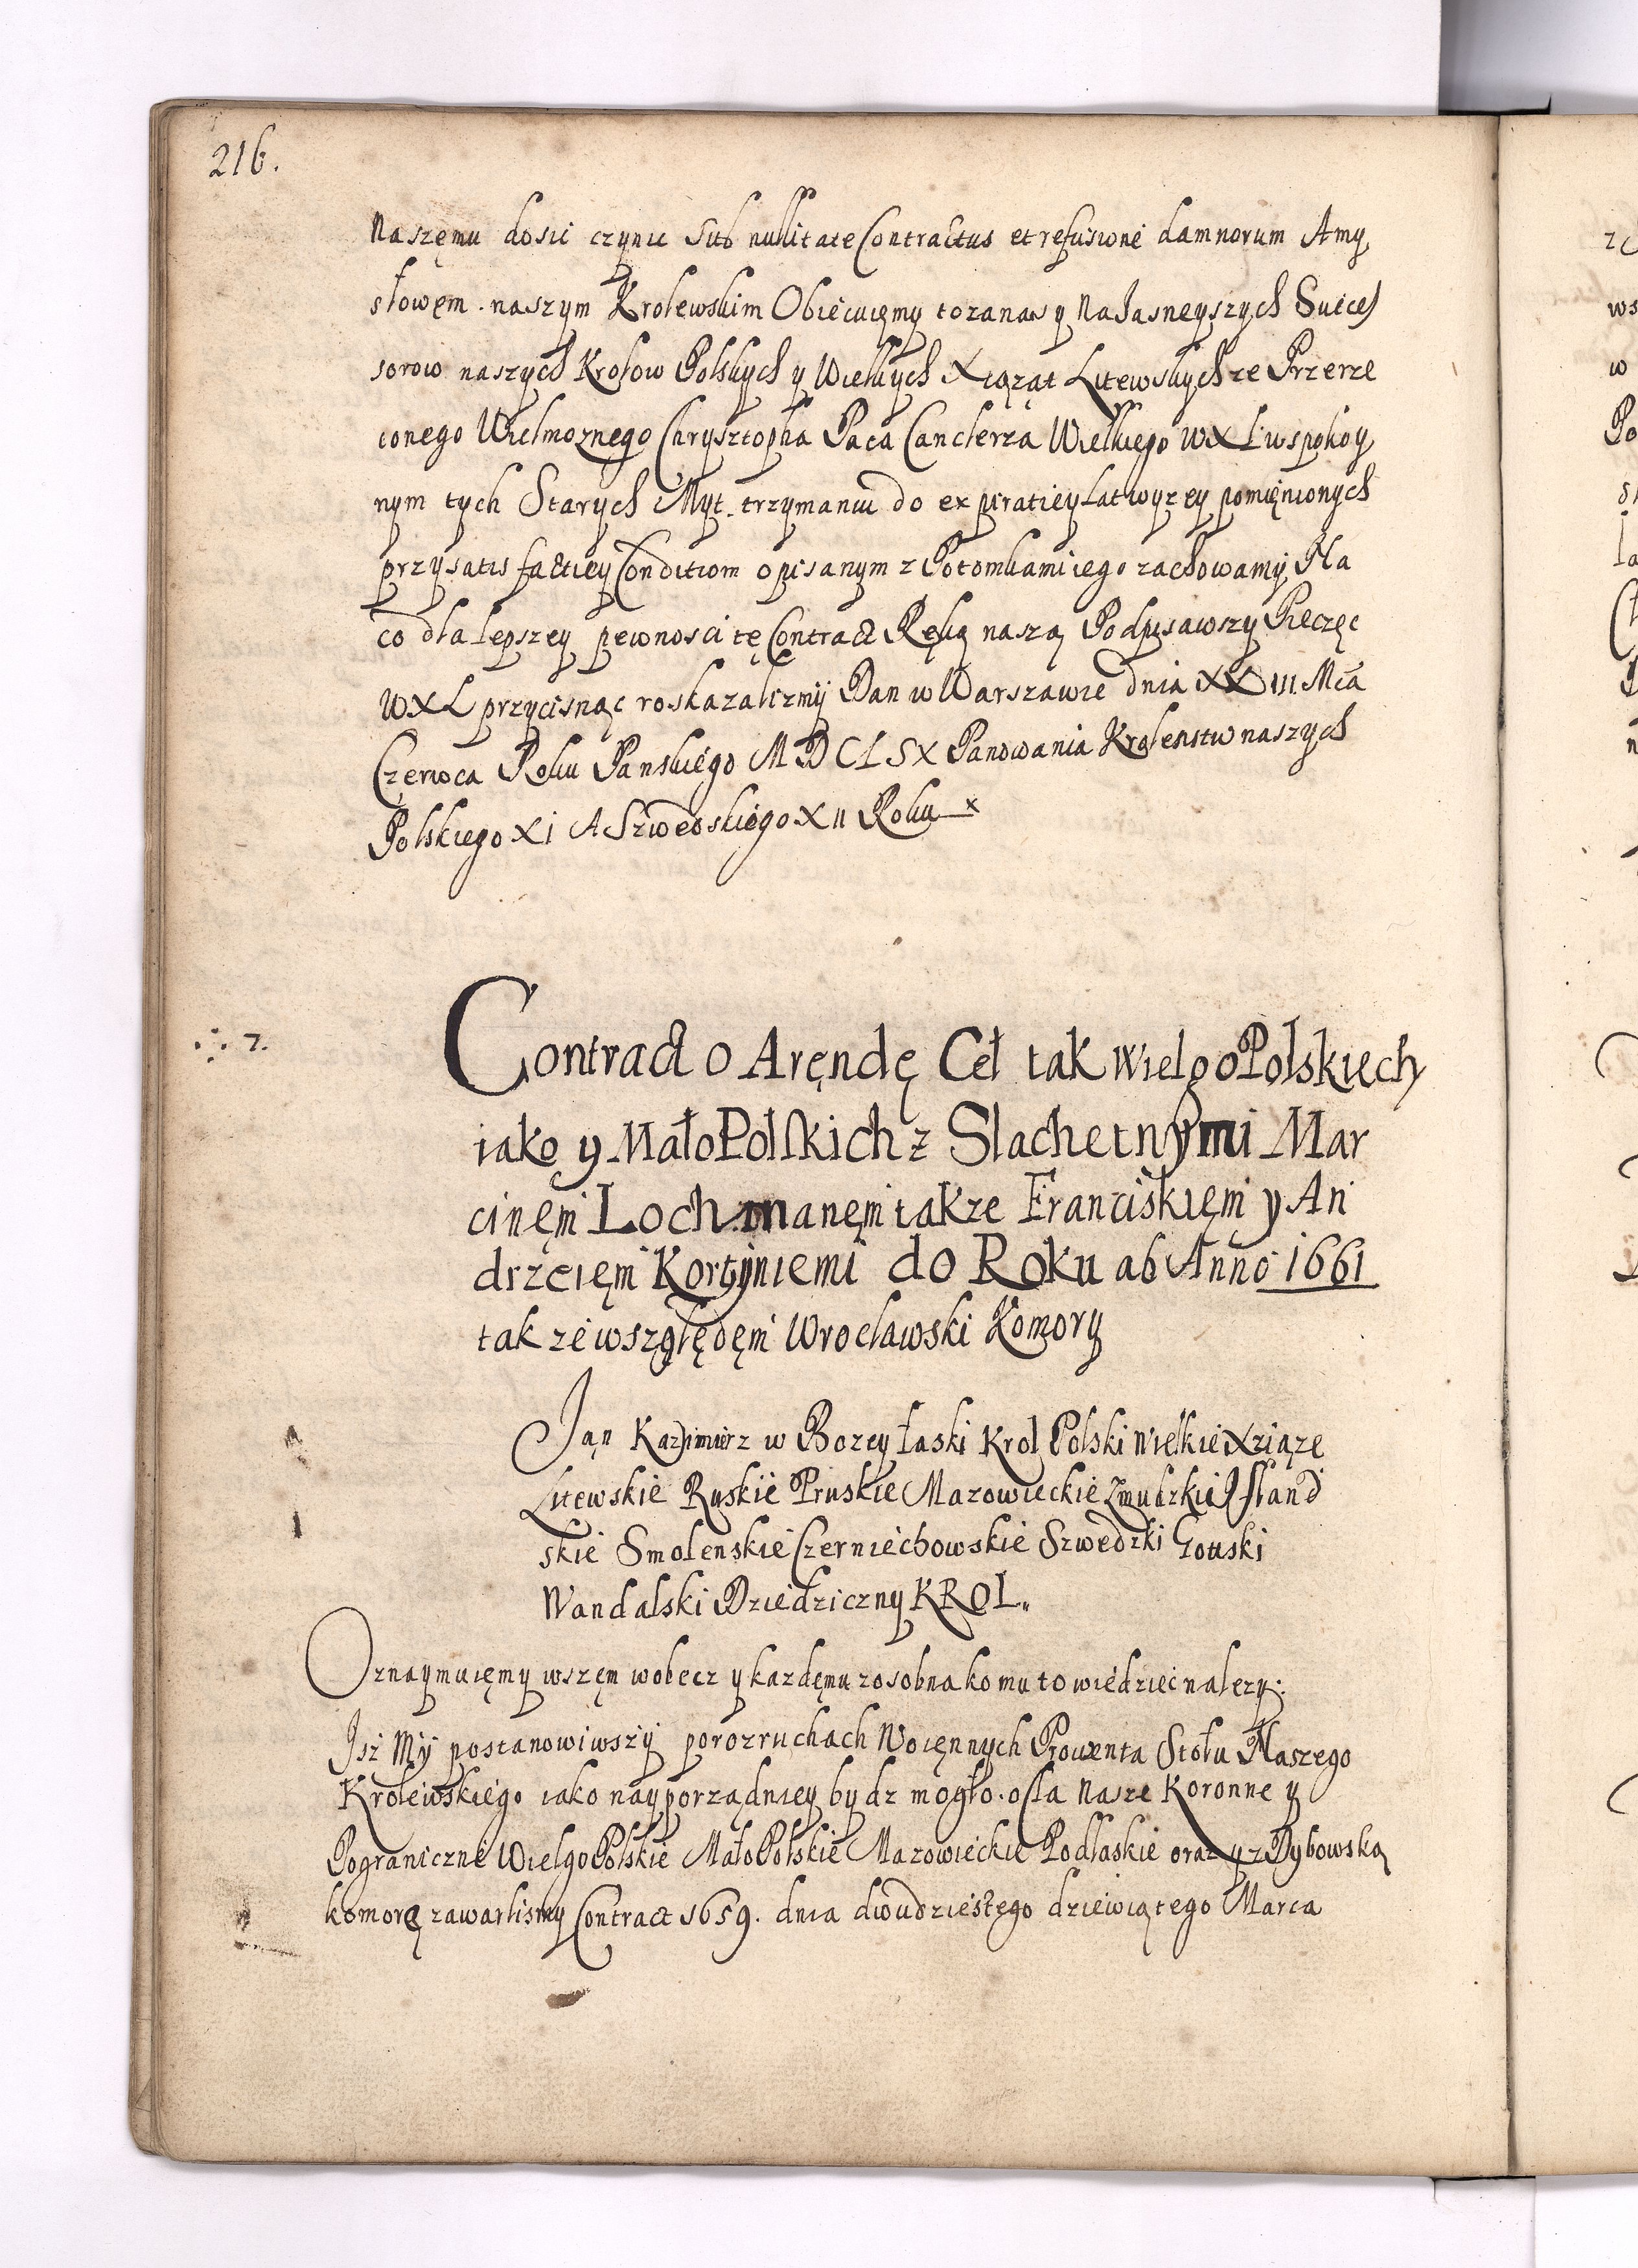 216.
Naszęmu dosic czynic Sub nullitate Contractus et refusione damnorum A my
słowęm naszym Krolewskim Obiecuięmy to za nas y Najasneyszych Succes
sorow naszych Krolow Polskych y Wielkych Xiąząt Litewskych ze Przerze
conego Wielmoznego Chrysztopha Paca Canclerza Wielkiego WXL w spokoy
nym tych Starych Myt trzymaniu do expiratiey Lat wyzey pomięnionych
przy satisfactiey Conditiom opisanym z Potomkami iego zachowamy, Na
co dla lepszey pewnosci tę Contract Ręką naszą Podpisawszy Pieczęc
WXL przycisnąc roskazalizmy Dan w Warszawie dnia XXIII Mca
Czerwca Roku Panskiego MDCLSX Panowania Krolenstw naszych
Polskiego XI A Szwedskiego XII Roku x
7.
Contract o Aręndę Ceł tak WielgoPolskiech
iako y MałoPolskich z Slachetnymi Mar
cinęm Lochmanęm takze Franciskięm y An
drzeięm Kortyniemi do Roku ab Anno 1661
tak ze wszględęm Wrocławski Komory
Jąn Kazimierz w Bozey Łaski Krol Polski Wielkie Xziąze
Litewskie Ruskie Pruskie Mazowieckie Zmudzkie Ifland
skie Smolenskie Czerniechowskie Szwedzki Gottski
Wandalski Dziedziczny KROL.
Oznaymuięmy wszęm wobecz y kazdęmu zosobna komu to wiedziec nalezy:
Isz My postanowiwszy po rozruchach Woięnnych Prowenta Stołu Naszego
Krolewskiego iako nayporządniey bydz mogło. o Cła Nasze Koronne y
Pograniczne WielgoPolskie MałoPolskie Mazowieckie Podlaskie oraz y z Dybowską
komorą zawarlismy Contract 1659. dnia dwudziestego dziewiątego Marca